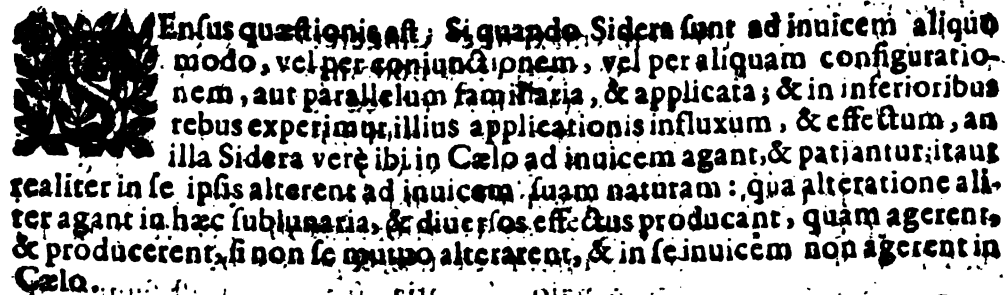 SEnſus quæſtionis eſt; Si quando Sidera ſunt ad inuicem aliquo
modo, vel per coniunctionem, vel per aliquam configuratio-
nem, aut parallelum familiaria, & applicata; & in inferioribus
rebus experimur, illius applicationis influxum, & effectum, an
illa Sidera verè ibi in Cælo ad inuicem agant, & patiantur; itaut
realiter in ſe ipſis alterent ad inuicem ſuam naturam: qua alteratione ali-
ter agant in hæc ſublunaria, & diuerſos effectus producant, quàm agerent,
& producerent, ſi non ſe mutuo alterarent, & in ſe inuicem non agerent in
Cælo.